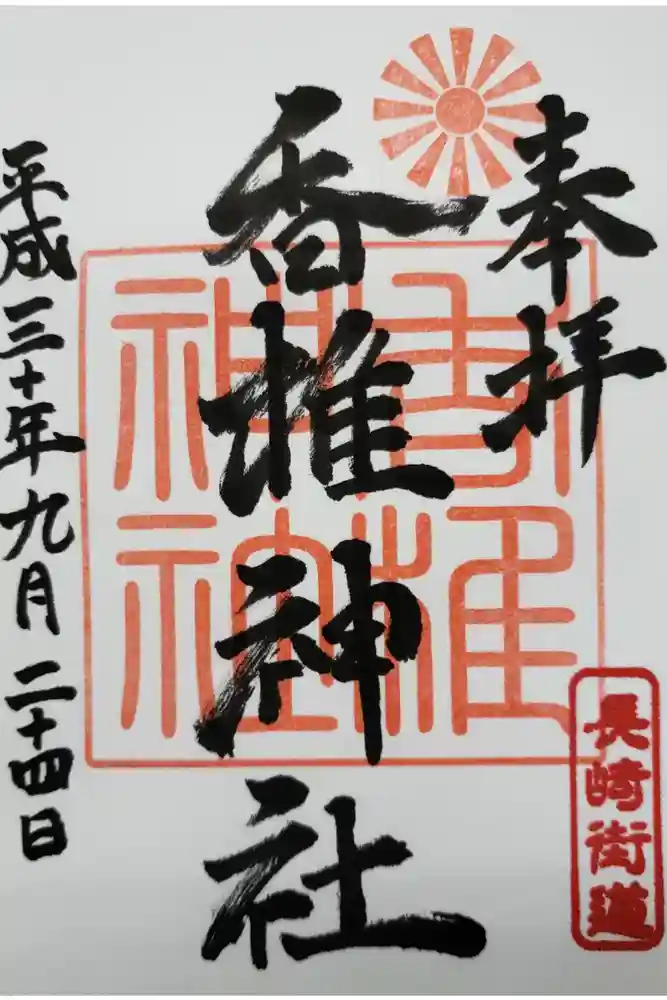 奉拝
長崎街道
香椎神社
香椎
神社
平成三十年九月二十四日